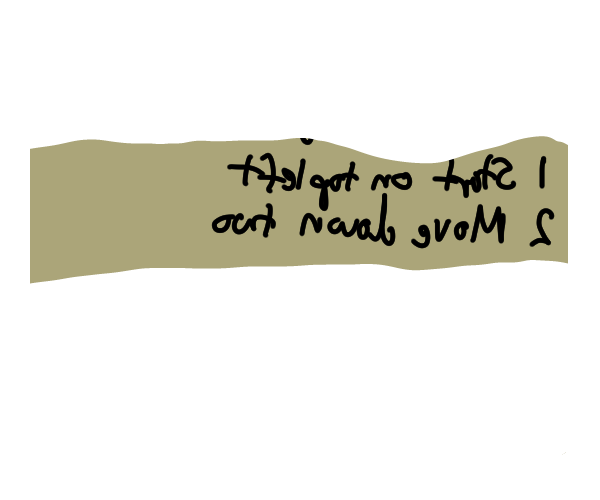 1 Start on top left
2 Move down two